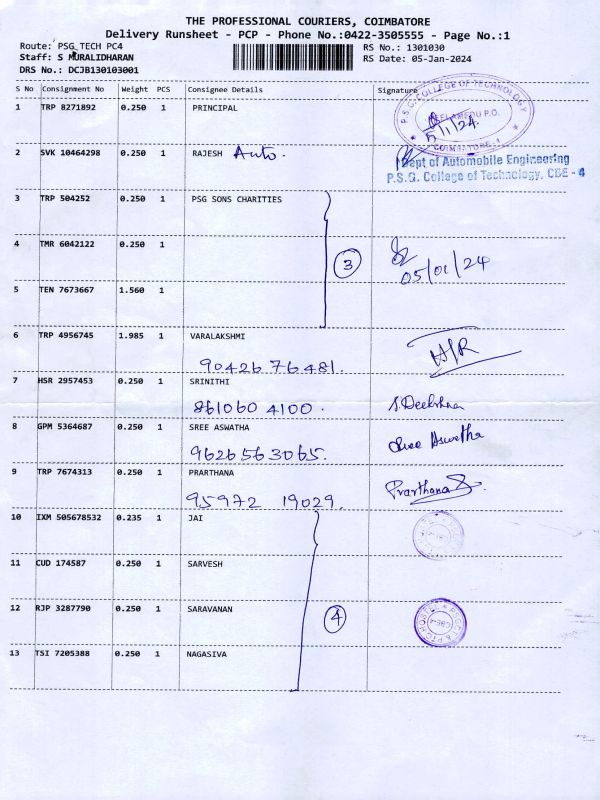 THE PROFESSIONAL COURIERS, COIMBATORE
Delivery Runsheet - PCP - Phone No.:0422-3505555 - Page No.:1
Route: PSG TECH PC4
RS No.: 1301030
Staff: S MURALIDHARAN
RS Date: 05-Jan-2024
DRS No.: DCJB130103001
S No Consignment No Weight PCS Consignee Details Signature
1 TRP 8271892 0.250 1 PRINCIPAL
P.S.G. COLLEGE OF TECHNOLOGY
PEELAMEDU P.O.
5/1/24
COIMBATORE-4
2 SVK 10464298 0.250 1 RAJESH Auto.
Dept of Automobile Engineering
P.S.G. College of Technology, CBE - 4
3 TRP 504252 0.250 1 PSG SONS CHARITIES
4 TMR 6042122 0.250 1
3
05/01/24
5 TEN 7673667 1.560 1
6 TRP 4956745 1.985 1 VARALAKSHMI
90426 76481.
H/R
7 HSR 2957453 0.250 1 SRINITHI
861060 4100.
8 GPM 5364687 0.250 1 SREE ASWATHA
9626563065.
Sree Aswatha
9 TRP 7674313 0.250 1 PRARTHANA
95972 19029.
Prarthana
10 IXM 505678532 0.235 1 JAI
11 CUD 174587 0.250 1 SARVESH
12 RJP 3287790 0.250 1 SARAVANAN
4
13 TSI 7205388 0.250 1 NAGASIVA